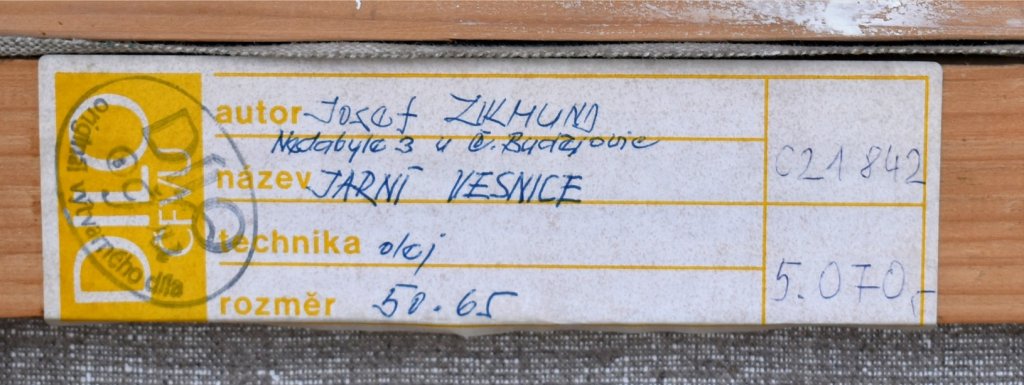 DÍLO
ČFVU
DÍLO
originál výtvarného díla
autor Josef ZIKMUND
Nedabyle 3 u Č. Budějovic
název JARNÍ VESNICE
technika olej
rozměr 50.65
C21842
5.070,-